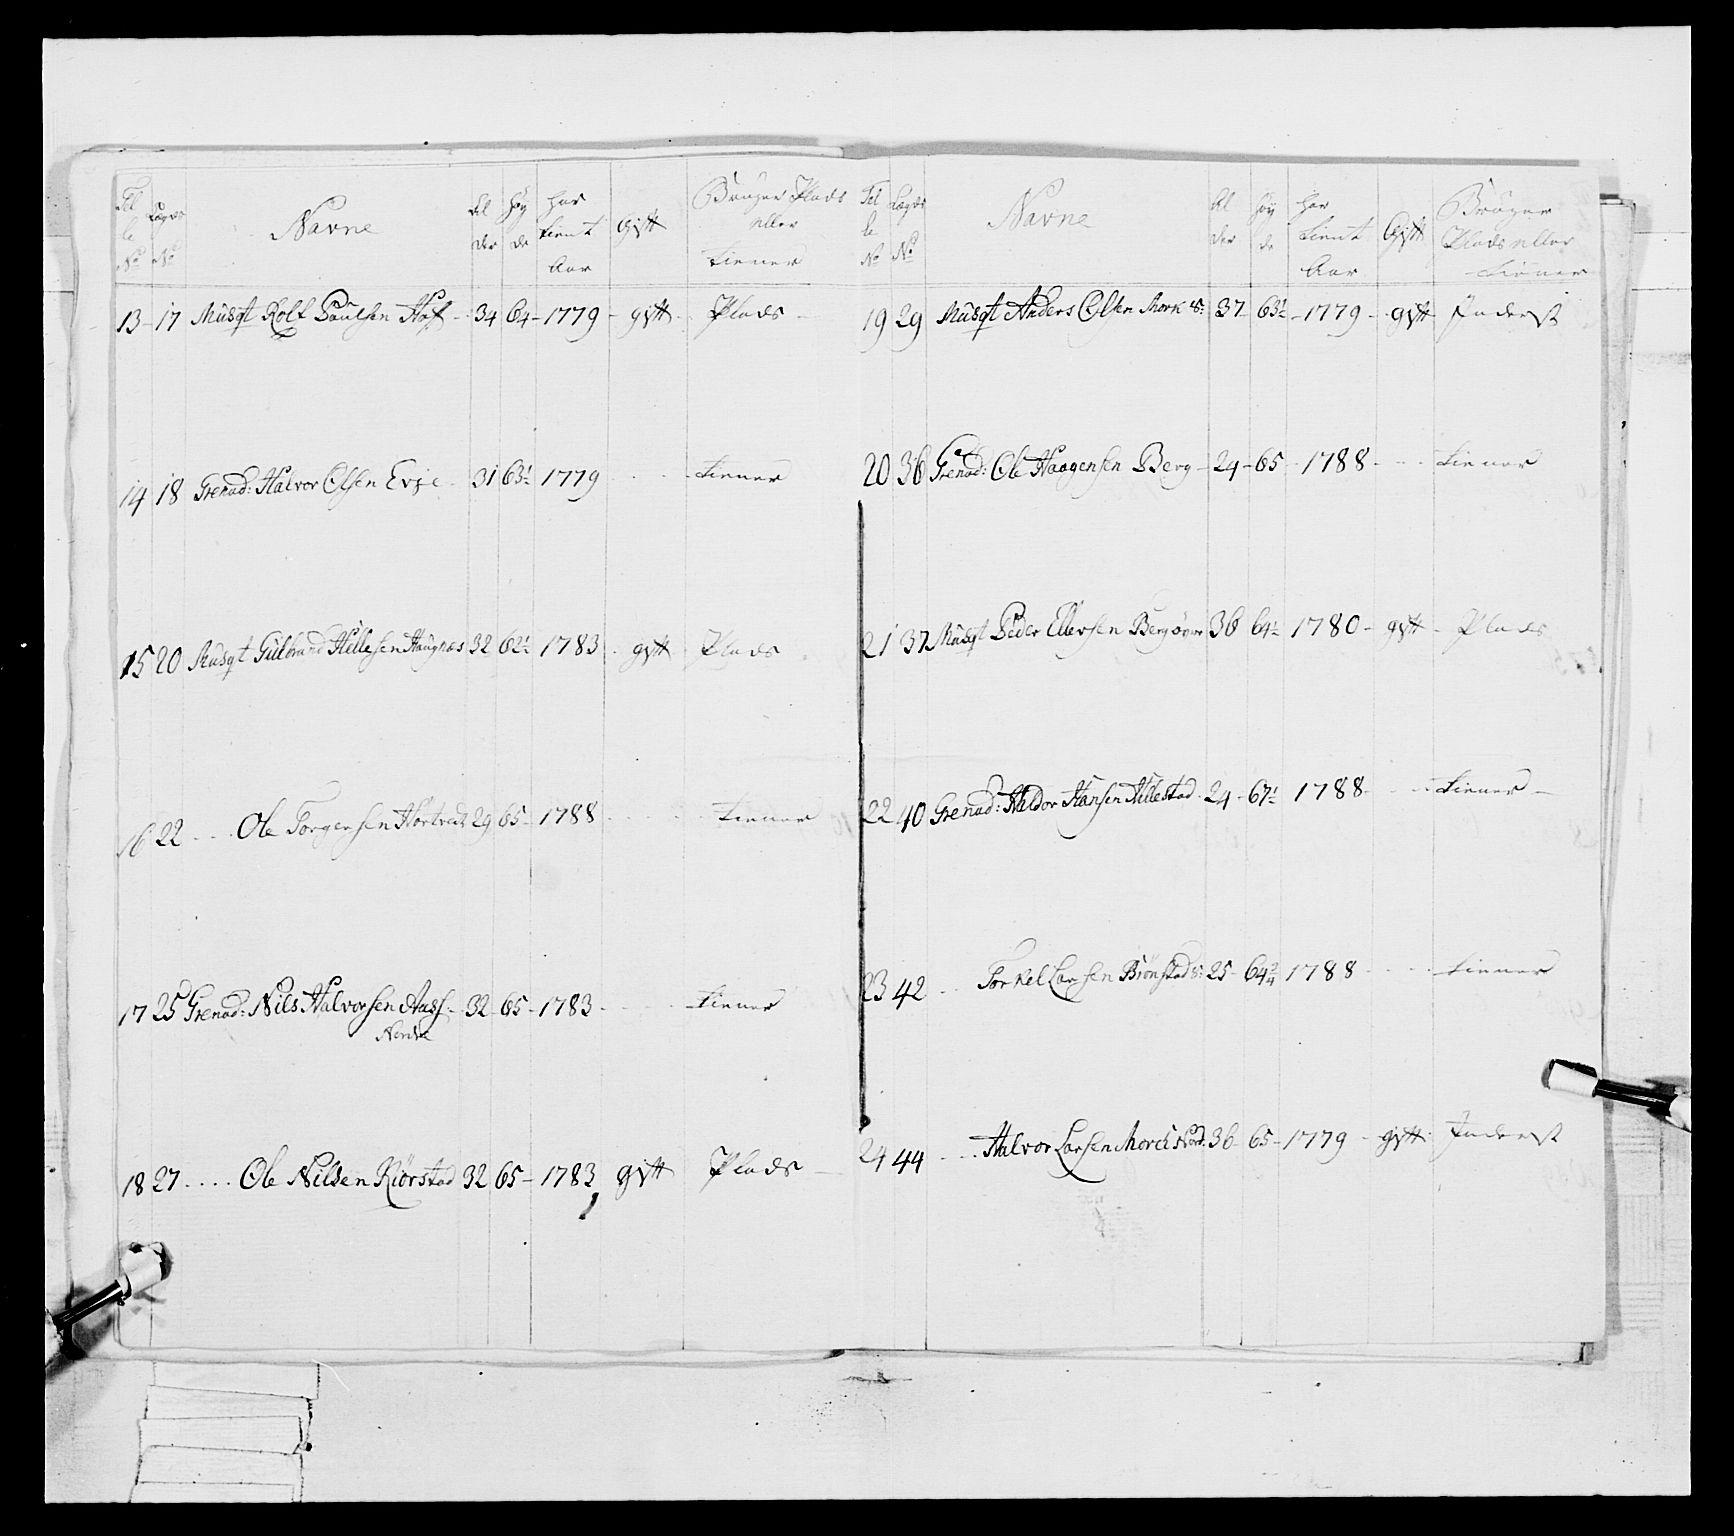 Tel Lægds Navne Al Høy Har Gift Bruger Plads
le N° der de tient eller
N° Aar tiener
13 - 17 Musqt Rolf Poulsen Hof - 34 64 - 1779 - gift - Plads -
14 18 Grenad: Halvor Olsen Evje - 31 63½ 1779 - - - tiener
15 20 Musqt Gulbrand Hellesen Haugnæs 32 62½ 1783 - gift Plads
16 22 - - - Ole Torgersen Hortved 29 65 - 1788 - - - tiener
17 25 Grenad: Nils Halvorsen Aas - 32 - 65 - 1783 - - - tiener
Nordre
18 27 . . . . Ole Nilsen Kiörstad 32 65 - 1783 gift Plads -
Tel Lægds Navne Al Høy Har Gift Bruger
le N° der de tient Plads eller
N° Aar tiener
19 29 Musqt Anders Olsen Mork 37 - 63½ - 1779 - gift Inderst
20 36 Grenad: Ole Haagensen Berg - 24 - 65 - 1788 - - - tiener
21 37 Musqt Peder Ellevsen Berg övre 36 64½ 1780 - gift - Plads
22 40 Grenad: Haldor Hansen Hillestad - 24 - 67½ 1788 - - - tiener -
23 42 - - - Torkel Larsen Biönstad 25 - 64¾ 1788 - - - tiener
24 44 - - . . Halvor Larsen Morch 36 - 65 - 1779 - gift Inderst